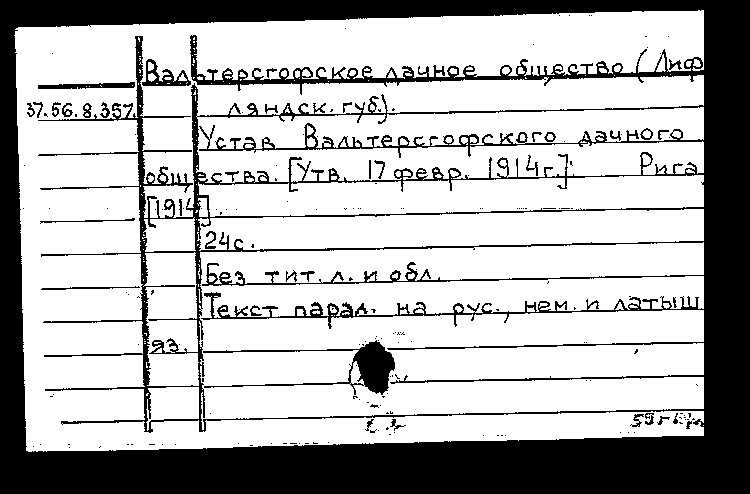 Вальтерсгофское дачное общество (Лиф
37.56.8.357. ляндск. губ.).
Устав Вальтерсгофского дачного
общества. [Утв. 17 февр. 1914г.]. Рига
[1914].
24с.
Без тит. л. и обл.
Текст парал. на рус., нем. и латыш
яз.